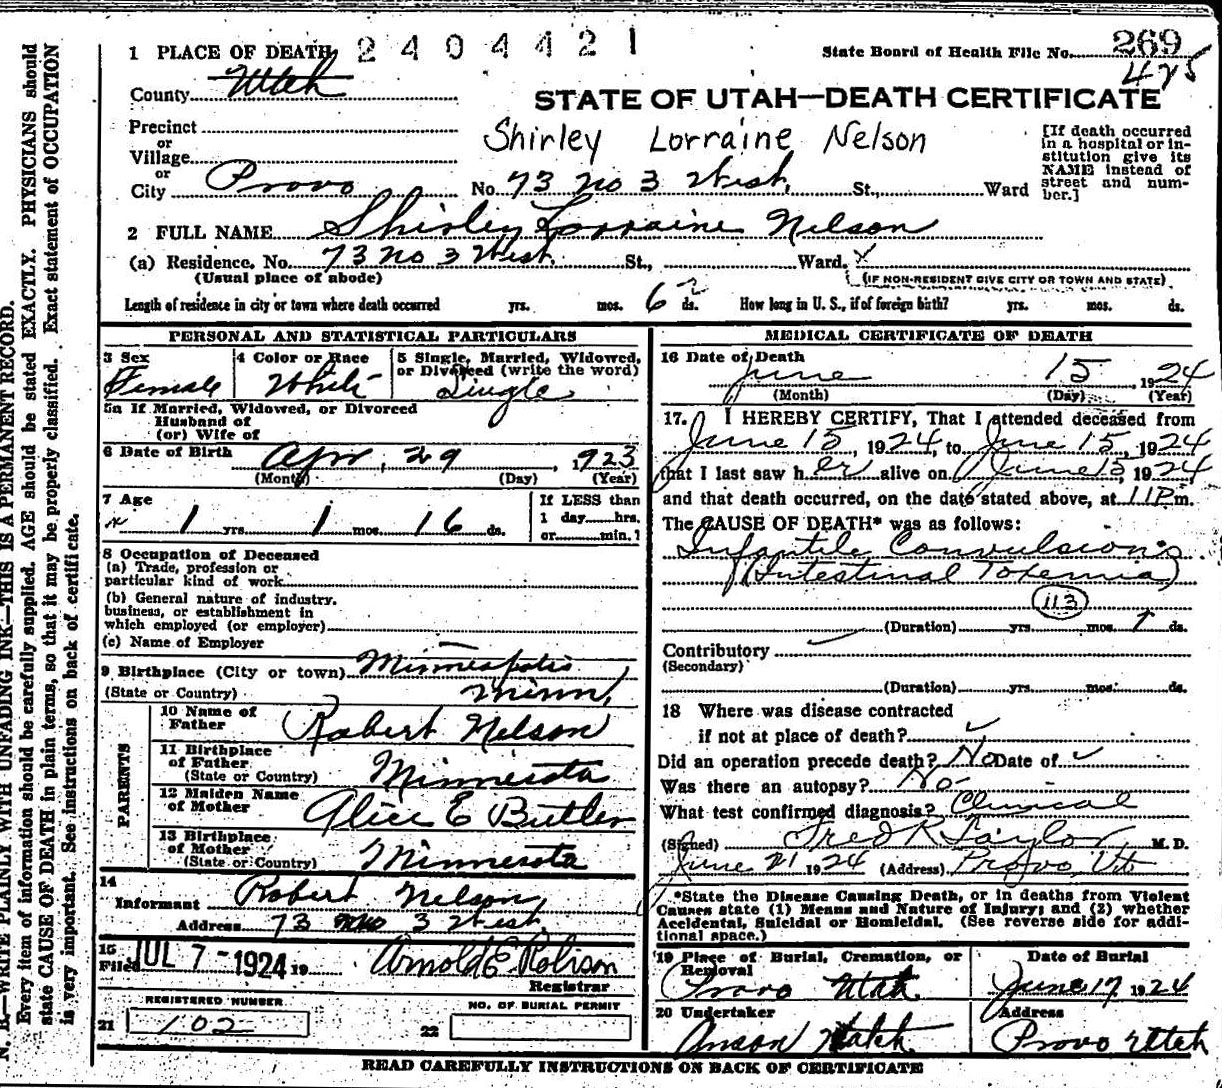 1 PLACE OF DEATH 2404421 State Board of Health File No. 269
425
County Utah
STATE OF UTAH—DEATH CERTIFICATE
Precinct
or
Village
or
City Provo
Shirley Lorraine Nelson
No. 73 no 3 West, St., Ward
[If death occurred
in a hospital or in-
stitution give its
NAME instead of
street and num-
ber.]
2 FULL NAME Shirley Lorraine Nelson
(a) Residence, No. 73 no 3 West. St., Ward. x
(Usual place of abode) (IF NON-RESIDENT GIVE CITY OR TOWN AND STATE)
Length of residence in city or town where death occurred yrs. mos. 6 ds. How long in U. S., if of foreign birth? yrs. mos. ds.
PERSONAL AND STATISTICAL PARTICULARS
3 Sex 4 Color or Race 5 Single, Married, Widowed,
or Divorced (write the word)
Female White Single
5a If Married, Widowed, or Divorced
Husband of
(or) Wife of
6 Date of Birth Apr, 29, 1923
(Month) (Day) (Year)
7 Age If LESS than
1 yrs. 1 mos. 16 ds. 1 day hrs.
or min. ?
8 Occupation of Deceased
(a) Trade, profession or
particular kind of work
(b) General nature of industry.
business, or establishment in
which employed (or employer)
(c) Name of Employer
9 Birthplace (City or town) Minneapolis
(State or Country) Minn,
PARENTS
10 Name of
Father Robert Nelson
11 Birthplace
of Father
(State or Country) Minnesota
12 Maiden Name
of Mother Alice E Butler
13 Birthplace
of Mother
(State or Country) Minnesota
14
Informant Robert Nelson
Address 73 no 3 West
15
Filed JUL 7 - 1924 19 Arnold E Robison
Registrar
REGISTERED NUMBER NO. OF BURIAL PERMIT
21 102 22
MEDICAL CERTIFICATE OF DEATH
16 Date of Death
June 15, 1924
(Month) (Day) (Year)
17. I HEREBY CERTIFY, That I attended deceased from
June 15, 1924, to June 15, 1924
that I last saw her alive on June 15, 1924
and that death occurred, on the date stated above, at 11 P m.
The CAUSE OF DEATH* was as follows:
Infantile Convulsions
(Intestinal Toxemia)
113
(Duration) yrs. mos. 1 ds.
Contributory
(Secondary)
(Duration) yrs. mos. ds.
18 Where was disease contracted
if not at place of death?
Did an operation precede death? No Date of
Was there an autopsy? No
What test confirmed diagnosis? Clinical
(Signed) Fred R Taylor, M. D.
June 21 1924 (Address) Provo, Ut
*State the Disease Causing Death, or in deaths from Violent
Causes state (1) Means and Nature of Injury; and (2) whether
Accidental, Suicidal or Homicidal. (See reverse side for addi-
tional space.)
19 Place of Burial, Cremation, or
Removal
Provo Utah
Date of Burial
June 17, 1924
20 Undertaker
Anson Hatch
Address
Provo Utah
READ CAREFULLY INSTRUCTIONS ON BACK OF CERTIFICATE
N. B.—WRITE PLAINLY WITH UNFADING INK—THIS IS A PERMANENT RECORD.
Every item of information should be carefully supplied. AGE should be stated EXACTLY. PHYSICIANS should
state CAUSE OF DEATH in plain terms, so that it may be properly classified. Exact statement of OCCUPATION
is very important. See instructions on back of certificate.